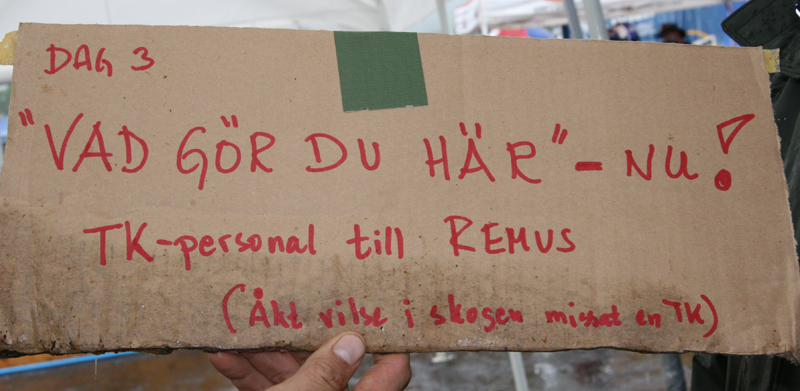 DAG 3
"VAD GÖR DU HÄR" - NU!
TK-personal till REMUS
(Åkt vilse i skogen missat en TK)